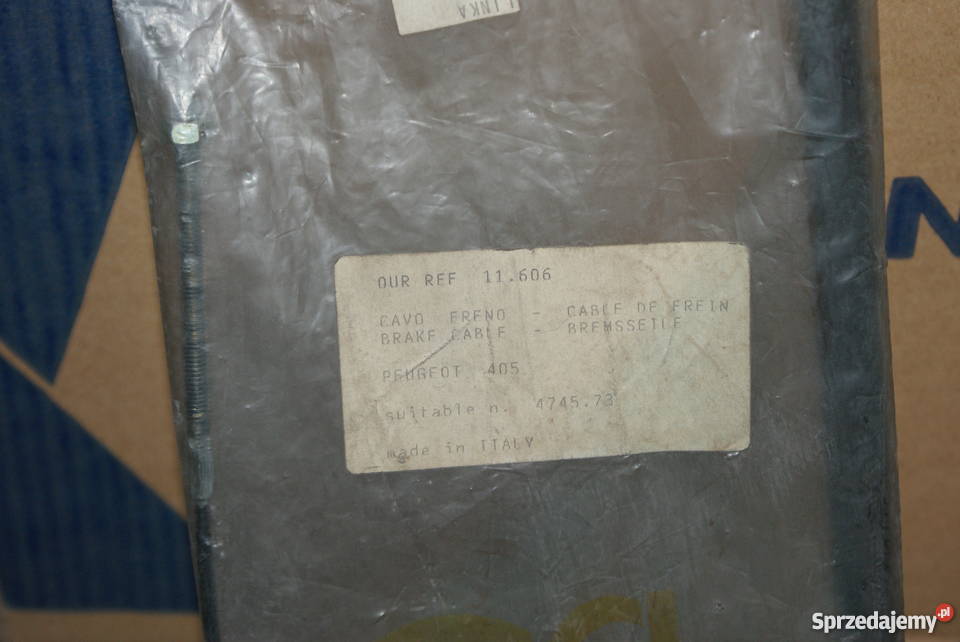 LINKA
OUR REF 11.606
CAVO FRENO - CABLE DE FREIN
BRAKE CABLE - BREMSSEILE
PEUGEOT 405
suitable n. 4745.73
made in ITALY
N
Sprzedajemy.pl